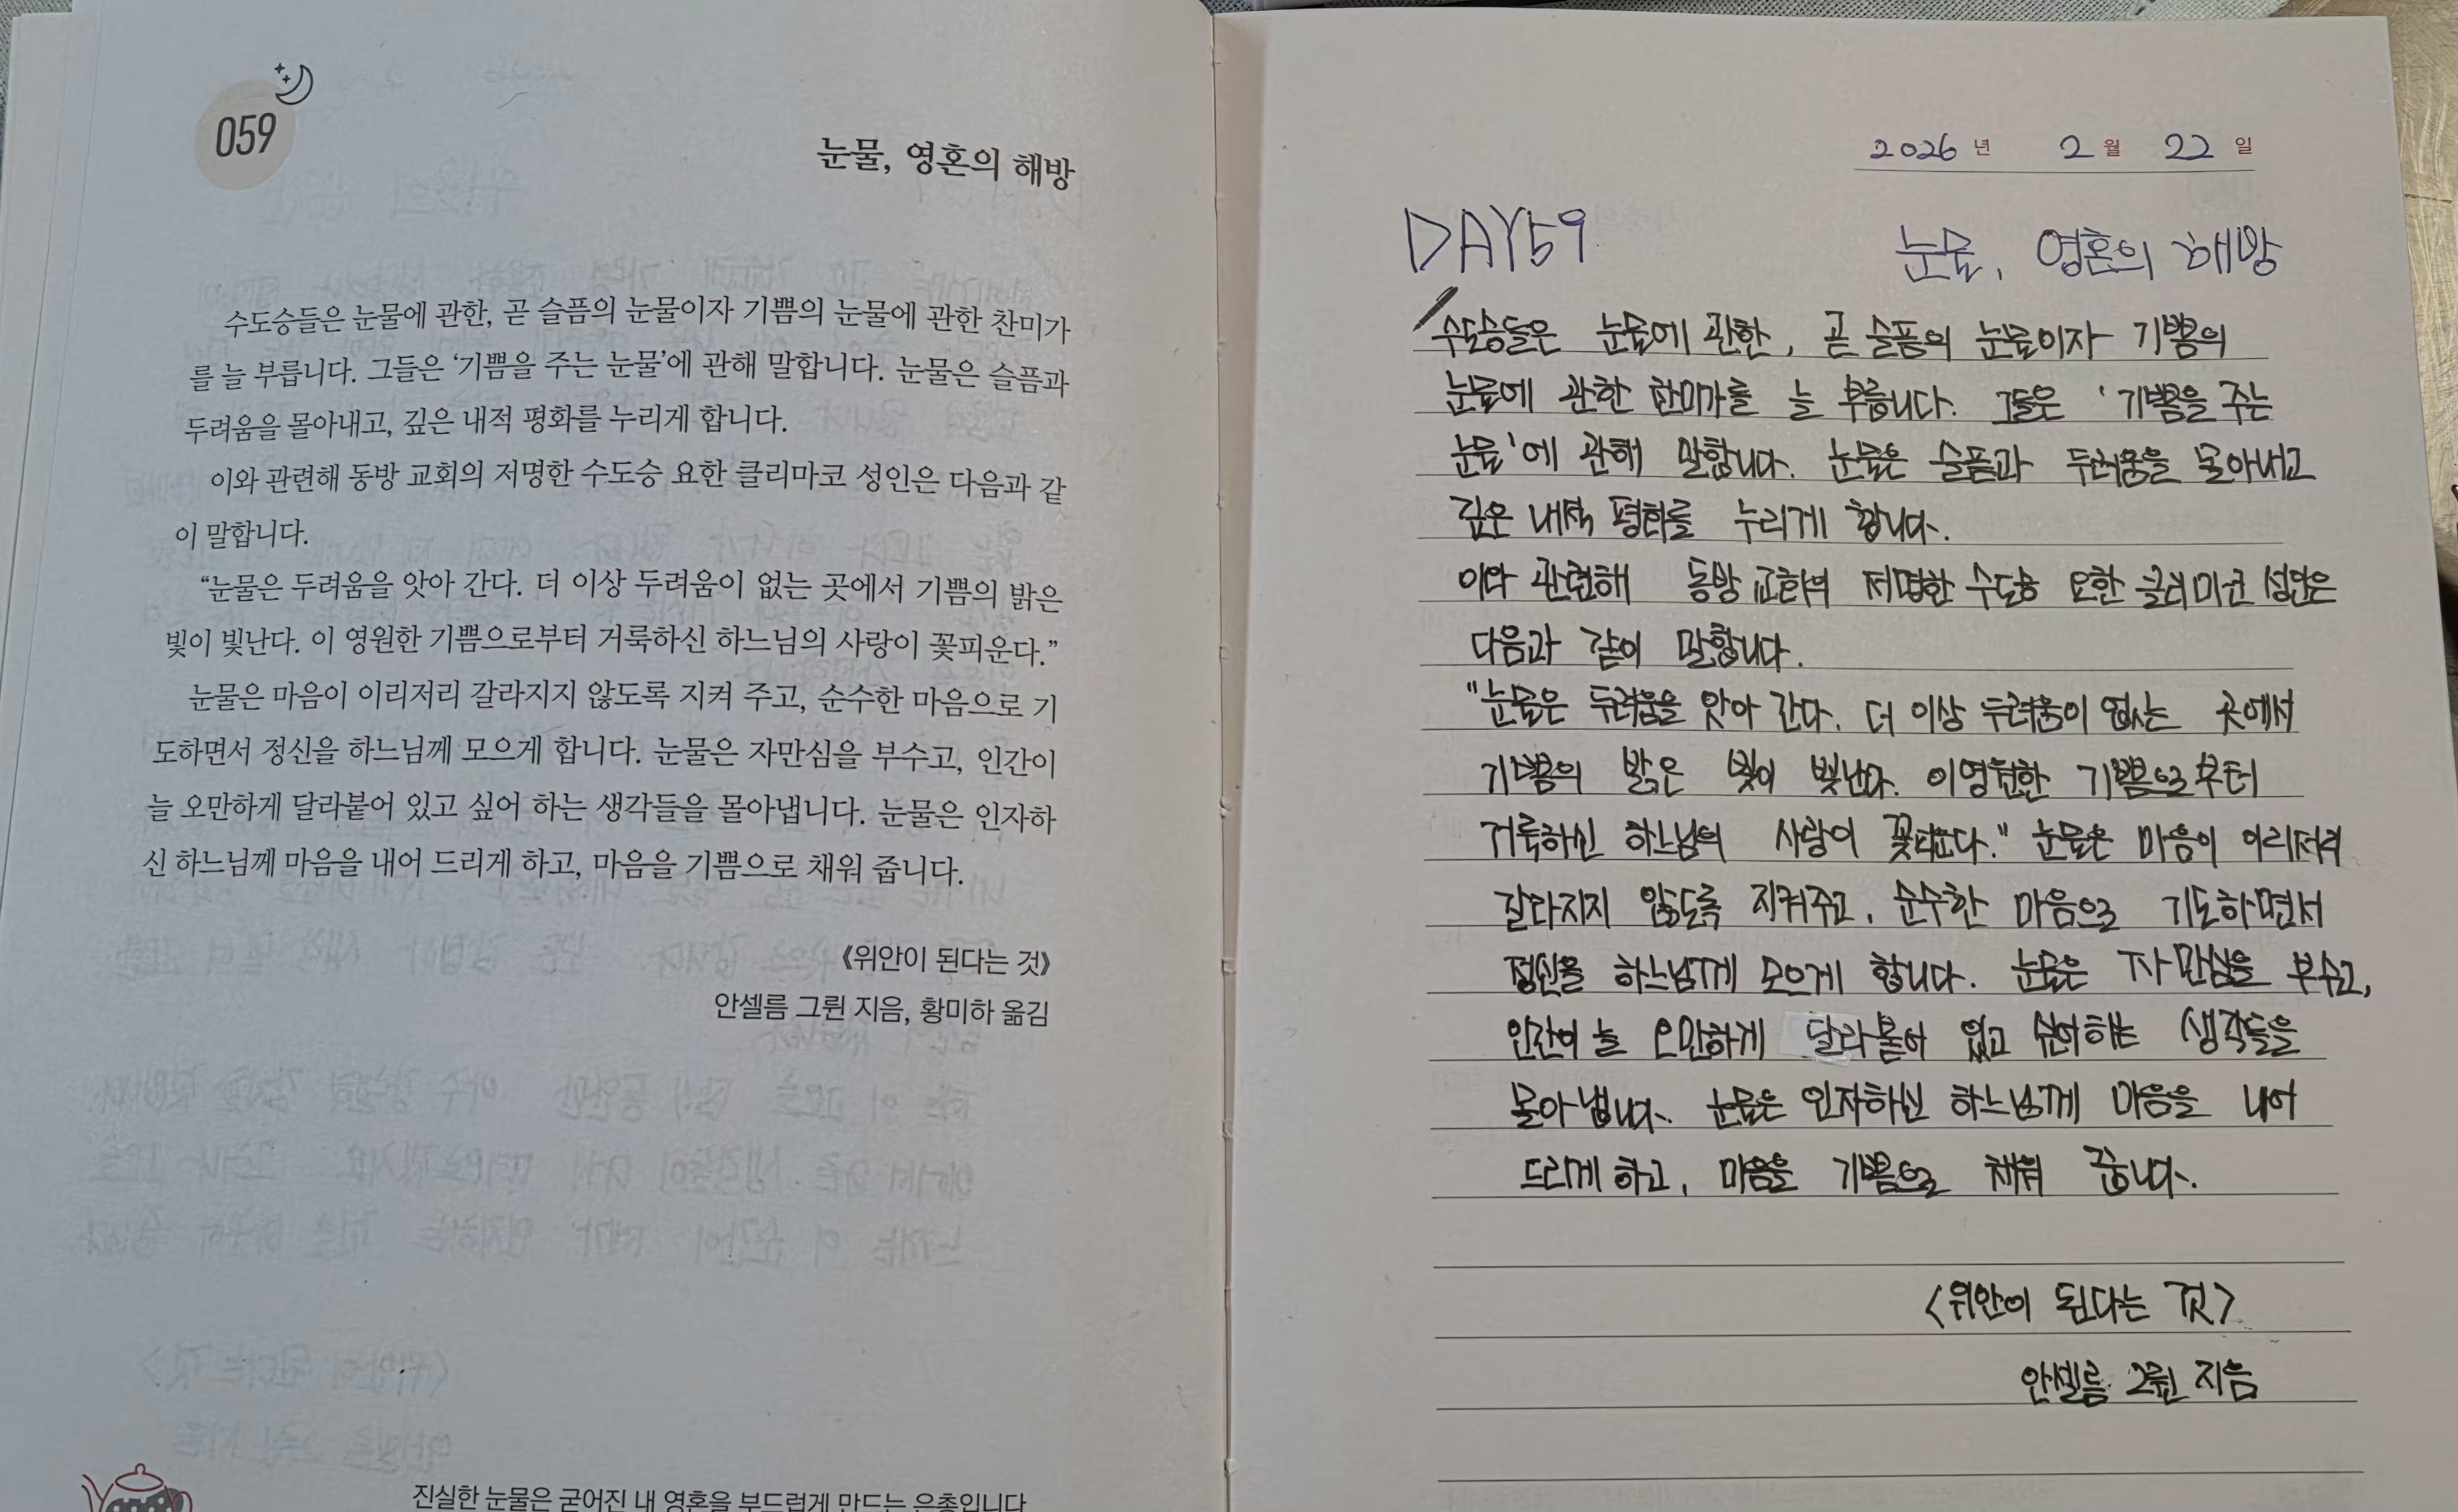 059
눈물, 영혼의 해방
수도승들은 눈물에 관한, 곧 슬픔의 눈물이자 기쁨의 눈물에 관한 찬미가
를 늘 부릅니다. 그들은 ‘기쁨을 주는 눈물’에 관해 말합니다. 눈물은 슬픔과
두려움을 몰아내고, 깊은 내적 평화를 누리게 합니다.
이와 관련해 동방 교회의 저명한 수도승 요한 클리마코 성인은 다음과 같
이 말합니다.
“눈물은 두려움을 앗아 간다. 더 이상 두려움이 없는 곳에서 기쁨의 밝은
빛이 빛난다. 이 영원한 기쁨으로부터 거룩하신 하느님의 사랑이 꽃피운다.”
눈물은 마음이 이리저리 갈라지지 않도록 지켜 주고, 순수한 마음으로 기
도하면서 정신을 하느님께 모으게 합니다. 눈물은 자만심을 부수고, 인간이
늘 오만하게 달라붙어 있고 싶어 하는 생각들을 몰아냅니다. 눈물은 인자하
신 하느님께 마음을 내어 드리게 하고, 마음을 기쁨으로 채워 줍니다.
《위안이 된다는 것》
안셀름 그륀 지음, 황미하 옮김
진실한 눈물은 굳어진 내 영혼을 부드럽게 만드는 은총입니다
2026 년 2 월 22 일
DAY59 눈물, 영혼의 해방
수도승들은 눈물에 관한, 곧 슬픔의 눈물이자 기쁨의
눈물에 관한 찬미가를 늘 부릅니다. 그들은 '기쁨을 주는
눈물'에 관해 말합니다. 눈물은 슬픔과 두려움을 몰아내고
깊은 내적 평화를 누리게 합니다.
이와 관련해 동방 교회의 저명한 수도승 요한 클리마코 성인은
다음과 같이 말합니다.
"눈물은 두려움을 앗아 간다. 더 이상 두려움이 없는 곳에서
기쁨의 밝은 빛이 빛난다. 이영원한 기쁨으로부터
거룩하신 하느님의 사랑이 꽃피운다." 눈물은 마음이 이리저리
갈라지지 않도록 지켜주고, 순수한 마음으로 기도하면서
정신을 하느님께 모으게 합니다. 눈물은 자만심을 부수고,
인간이 늘 오만하게 달라붙어 있고 싶어하는 생각들을
몰아냅니다. 눈물은 인자하신 하느님께 마음을 내어
드리게 하고, 마음을 기쁨으로 채워 줍니다.
<위안이 된다는 것>
안셀름 그륀 지음